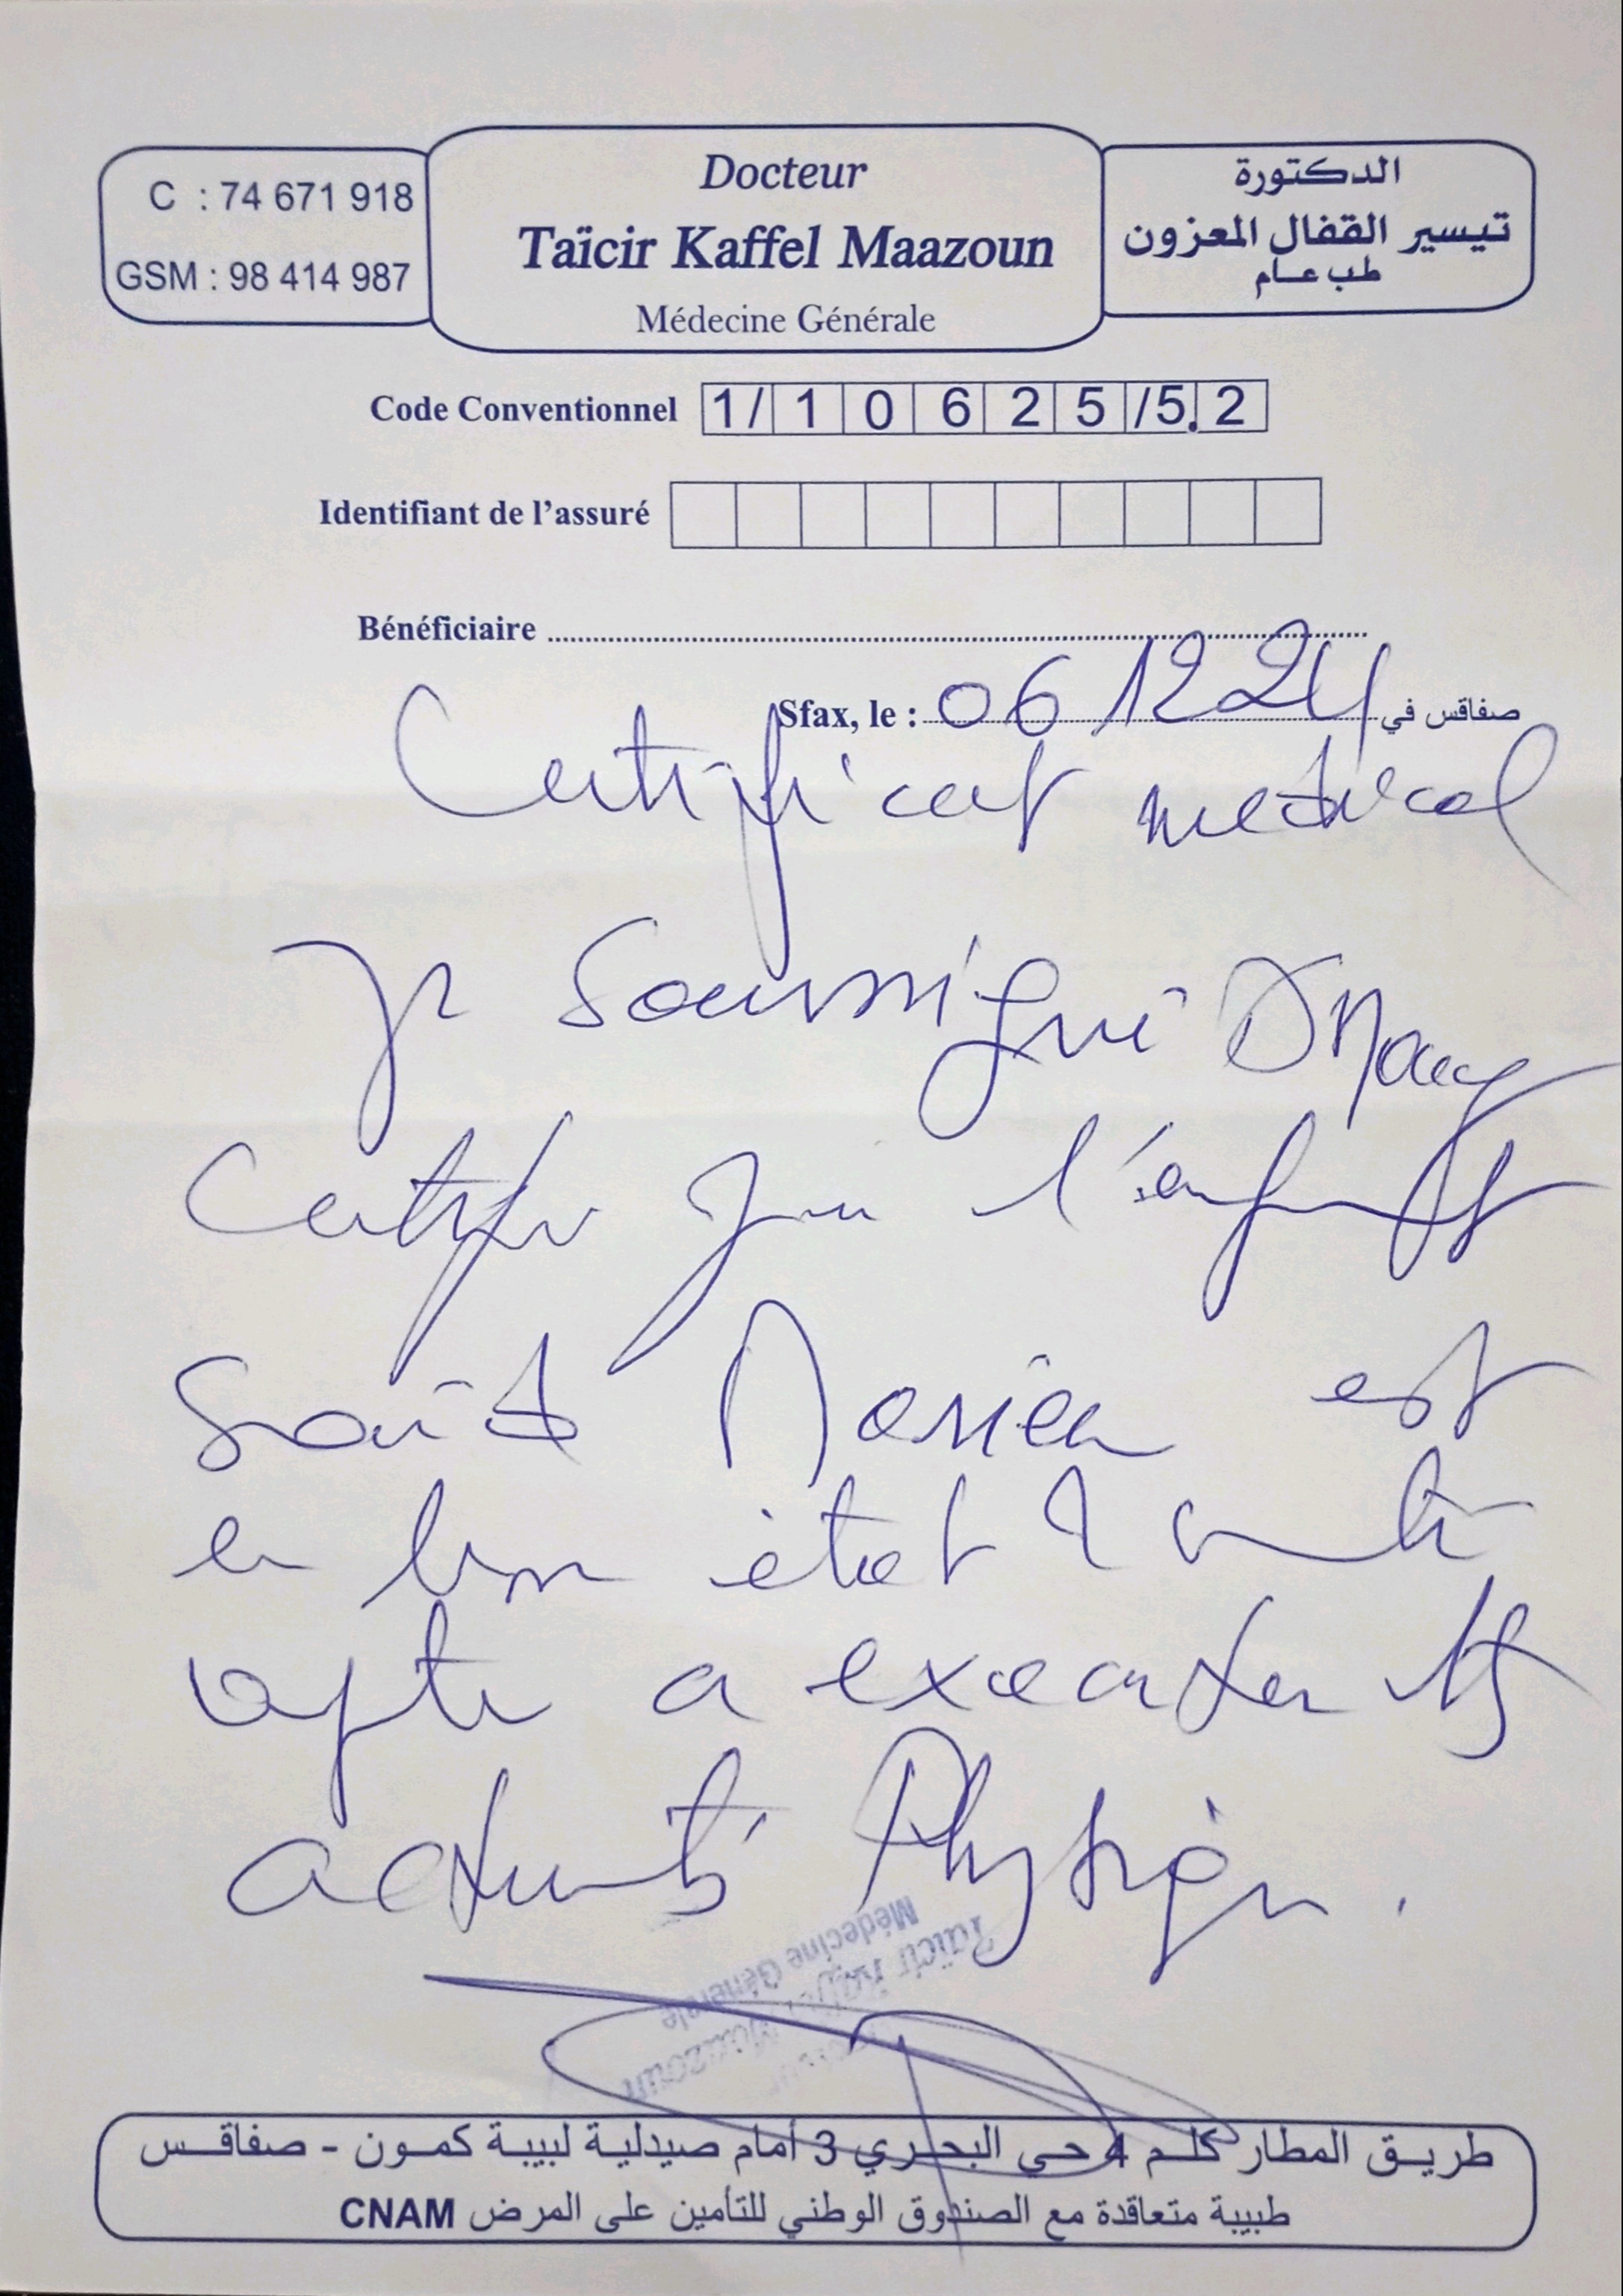 C : 74 671 918
GSM : 98 414 987
Docteur
Taïcir Kaffel Maazoun
Médecine Générale
الدكتورة
تيسير القفال المعزون
طب عام
Code Conventionnel 1/10625/5.2
Identifiant de l'assuré
Bénéficiaire
Sfax, le : 06 12 24 صفاقس في
Certificat medical
Je soussigné Dr
Certifie que l'enfant
est
en bon état de santé
apte a executer les
activités Physique.
Taïcir Kaffel Maazoun
Médecine Générale
طريق المطار كلم 4 حي البحري 3 أمام صيدلية لبيبة كمون - صفاقس
طبيبة متعاقدة مع الصندوق الوطني للتأمين على المرض CNAM